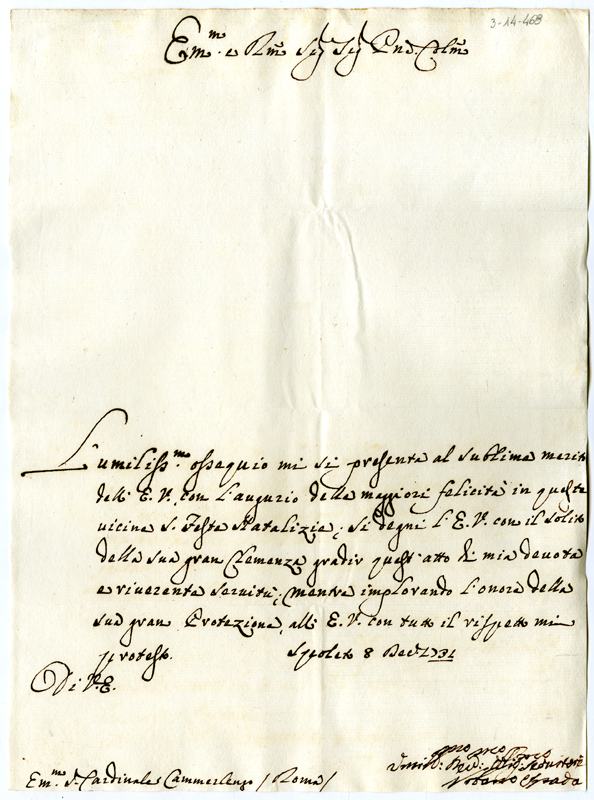 3-14-468
Em.mo e Rmo Sig Sig Pñe Colmo
L'umiliss.mo ossequio mi si presenta al sublime merito
dell' E. V. con l'augurio delle maggiori felicità in queste
vicine S. Feste Natalizie; si degni l'E. V. con il solito
della sua gran Clemenza gradir quest'atto di mia devota
e riverente servitù; mentre implorando l'onore della
sua gran Protezione, all' E. V. con tutto il rispetto mi
protesto. Spoleto 8 Dec.
Di V. E.
Em.mo S. Cardinale Cammerlengo / Roma /